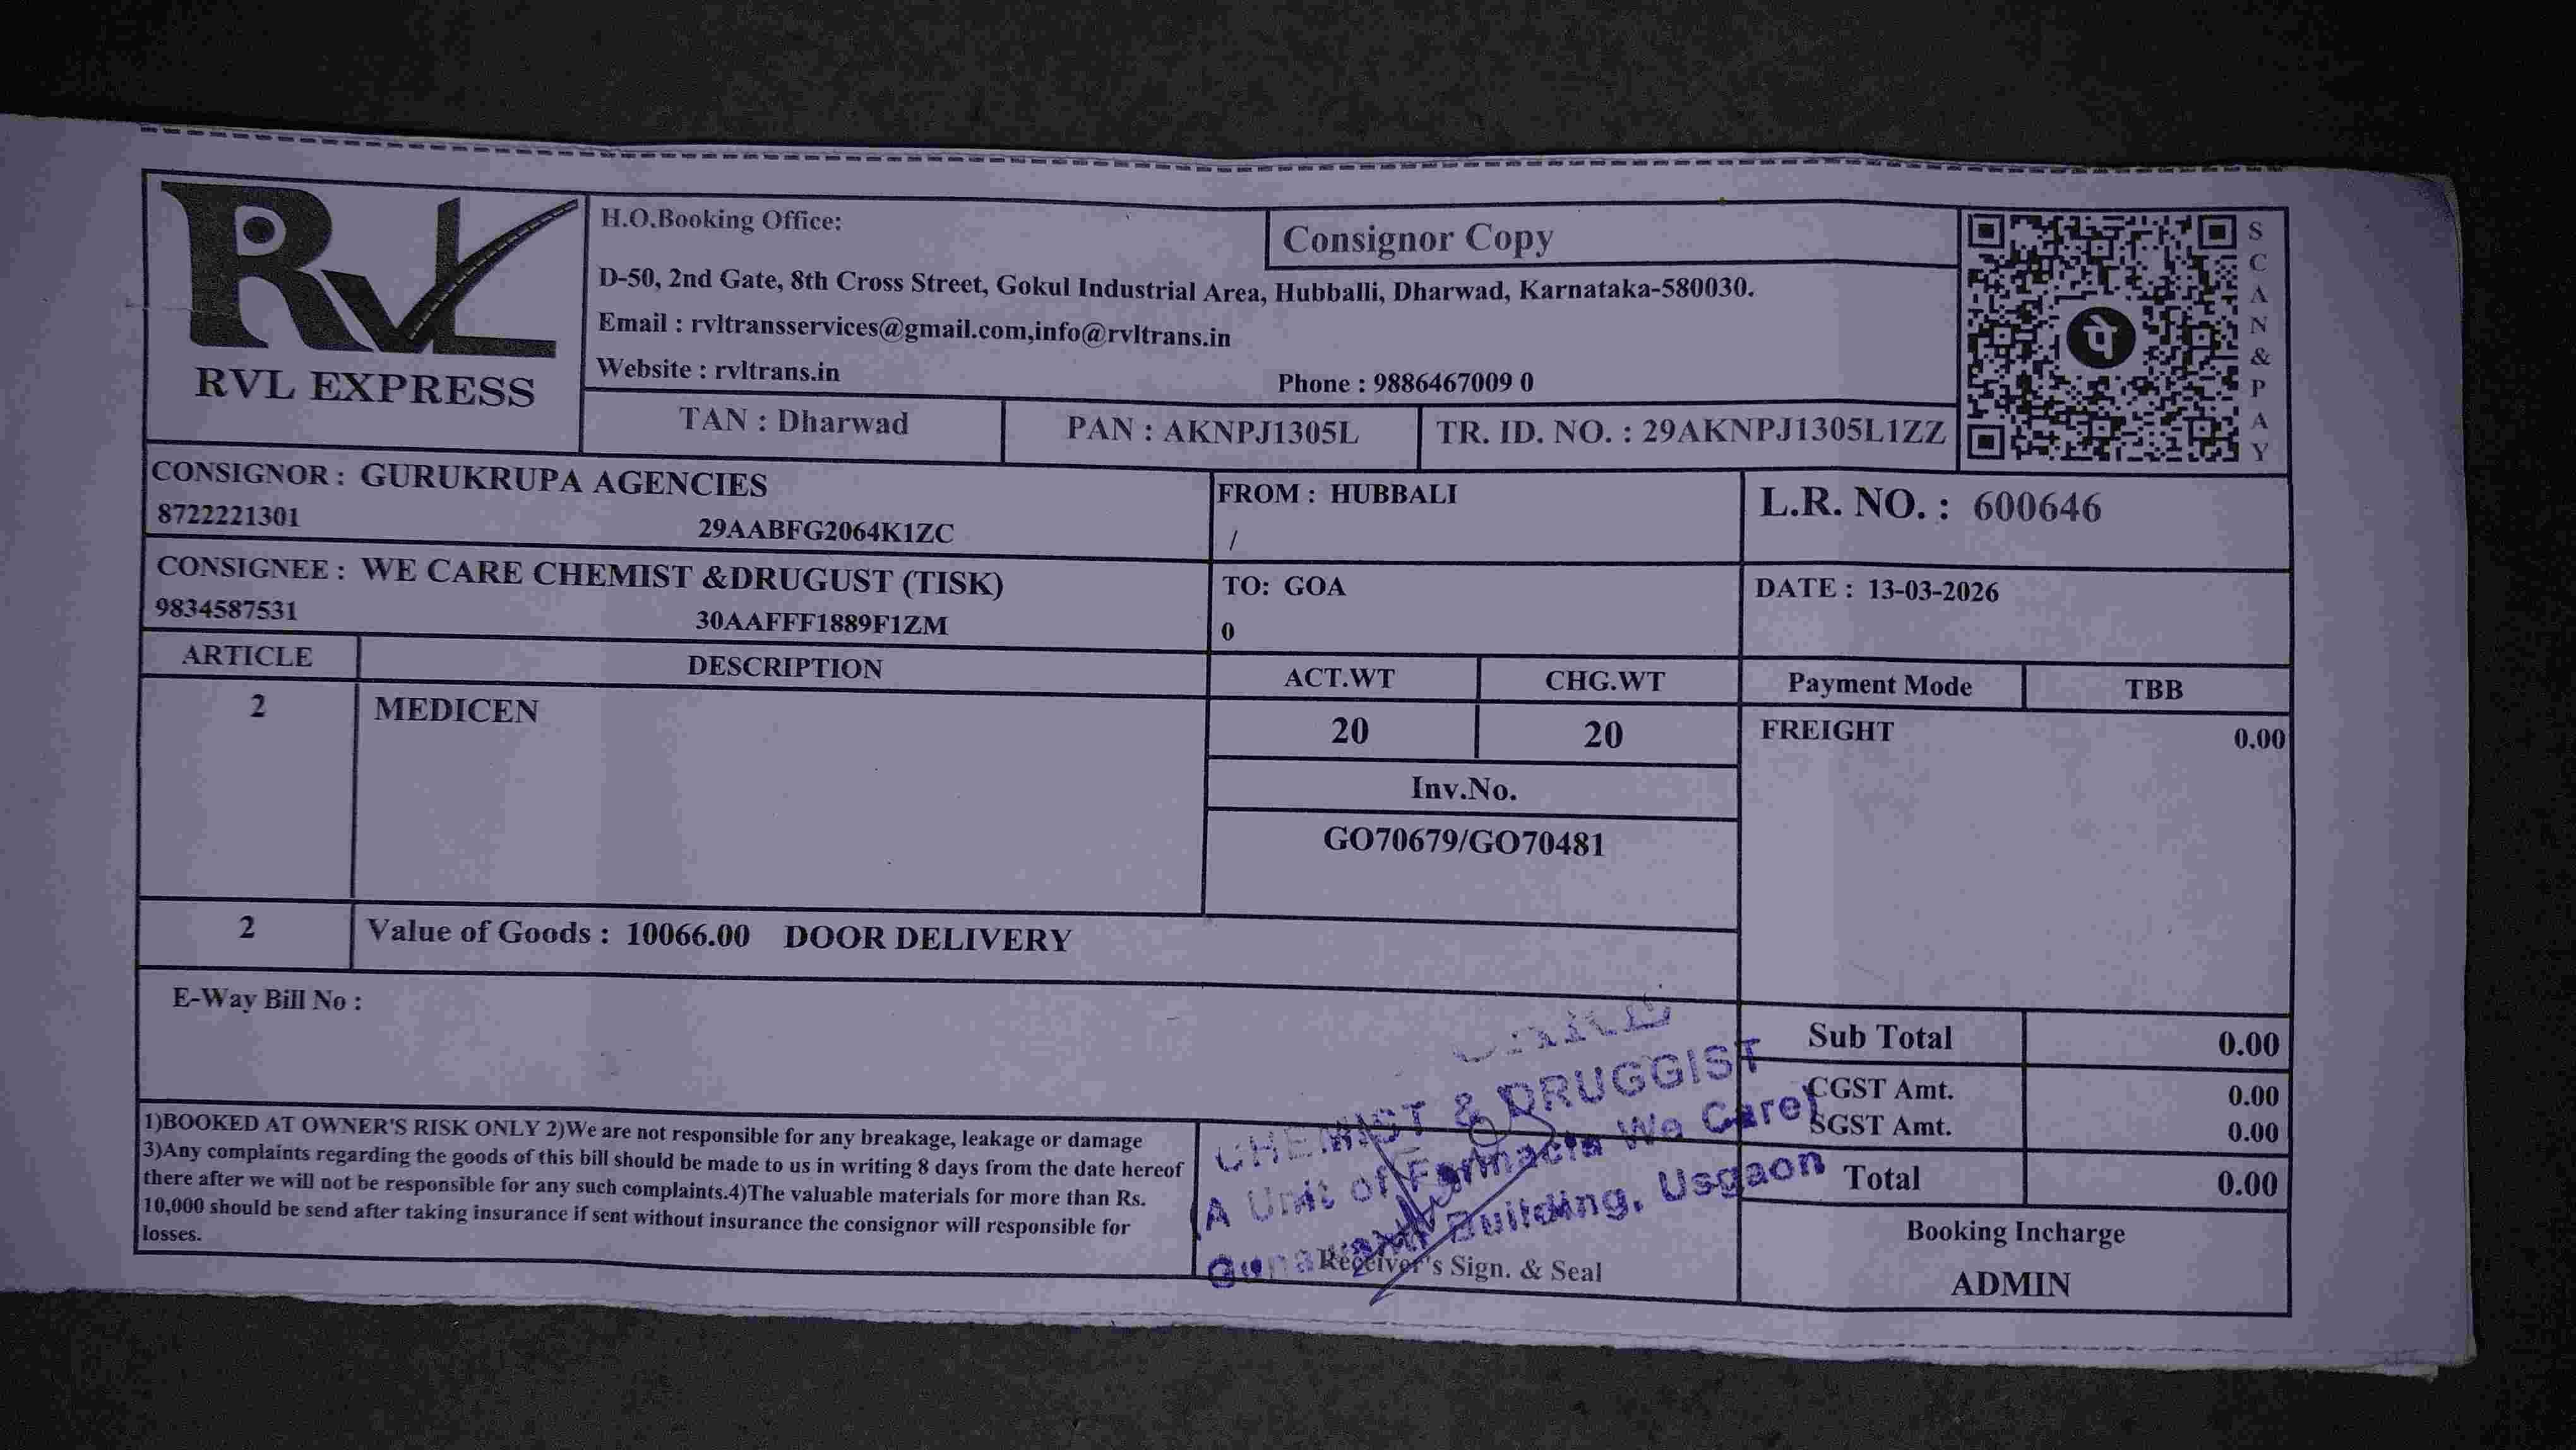 RVL
RVL EXPRESS
H.O.Booking Office:
Consignor Copy
D-50, 2nd Gate, 8th Cross Street, Gokul Industrial Area, Hubballi, Dharwad, Karnataka-580030.
Email : rvltransservices@gmail.com,info@rvltrans.in
Website : rvltrans.in
Phone : 9886467009 0
TAN : Dharwad
PAN : AKNPJ1305L
TR. ID. NO. : 29AKNPJ1305L1ZZ
पे
SCAN&PAY
CONSIGNOR : GURUKRUPA AGENCIES
8722221301 29AABFG2064K1ZC
FROM : HUBBALI
/
L.R. NO. : 600646
CONSIGNEE : WE CARE CHEMIST &DRUGUST (TISK)
9834587531 30AAFFF1889F1ZM
TO: GOA
0
DATE : 13-03-2026
ARTICLE DESCRIPTION ACT.WT CHG.WT Payment Mode TBB
2 MEDICEN 20 20 FREIGHT 0.00
Inv.No.
GO70679/GO70481
2 Value of Goods : 10066.00 DOOR DELIVERY
E-Way Bill No :
Sub Total 0.00
CGST Amt. 0.00
SGST Amt. 0.00
Total 0.00
1)BOOKED AT OWNER'S RISK ONLY 2)We are not responsible for any breakage, leakage or damage
3)Any complaints regarding the goods of this bill should be made to us in writing 8 days from the date hereof
there after we will not be responsible for any such complaints.4)The valuable materials for more than Rs.
10,000 should be send after taking insurance if sent without insurance the consignor will responsible for
losses.
CARE
CHEMIST & DRUGGIST
A Unit of Farmacia We Care
Building, Usgaon
Receiver's Sign. & Seal
Booking Incharge
ADMIN